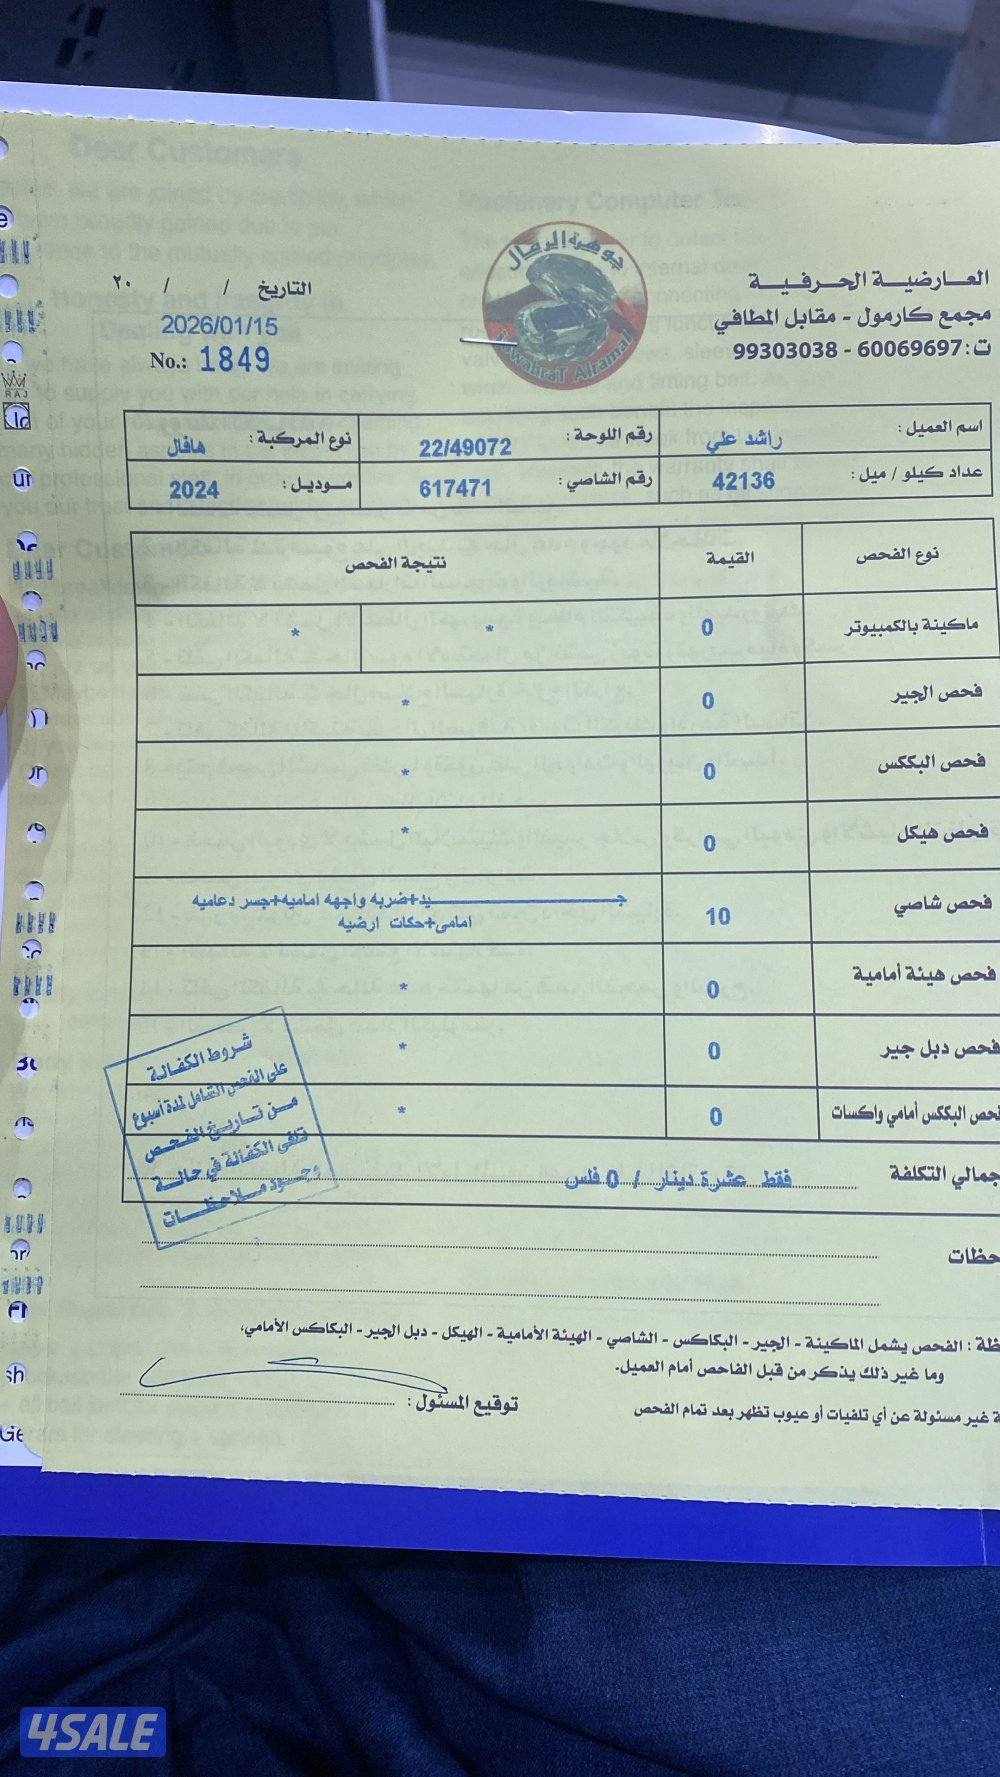 العارضية الحرفية
مجمع كارمول - مقابل المطافي
ت: 60069697 - 99303038
جوهرة الرمال
JawahraT Alramal
التاريخ / / ٢٠
2026/01/15
No.: 1849
اسم العميل: راشد علي رقم اللوحة: 22/49072 نوع المركبة: هافال
عداد كيلو / ميل: 42136 رقم الشاصي: 617471 موديل: 2024
نوع الفحص القيمة نتيجة الفحص
ماكينة بالكمبيوتر 0 * *
فحص الجير 0 *
فحص البككس 0 *
فحص هيكل 0 *
فحص شاصي 10 جيد+ضربه واجهه اماميه+جسر دعاميه
امامى+حكات ارضيه
فحص هيئة أمامية 0 *
فحص دبل جير 0 *
فحص البككس أمامي واكسات 0 *
جمالي التكلفة فقط عشرة دينار / 0 فلس
شروط الكفالة
على الفحص الشامل لمدة أسبوع
من تاريخ الفحص
تلغى الكفالة في حالة
وجود ملاحظات
حظات
ظة: الفحص يشمل الماكينة - الجير - البكاكس - الشاصي - الهيئة الأمامية - الهيكل - دبل الجير - البكاكس الأمامي،
وما غير ذلك يذكر من قبل الفاحص أمام العميل.
ة غير مسئولة عن أي تلفيات أو عيوب تظهر بعد تمام الفحص
توقيع المسئول:
RAJ
4SALE